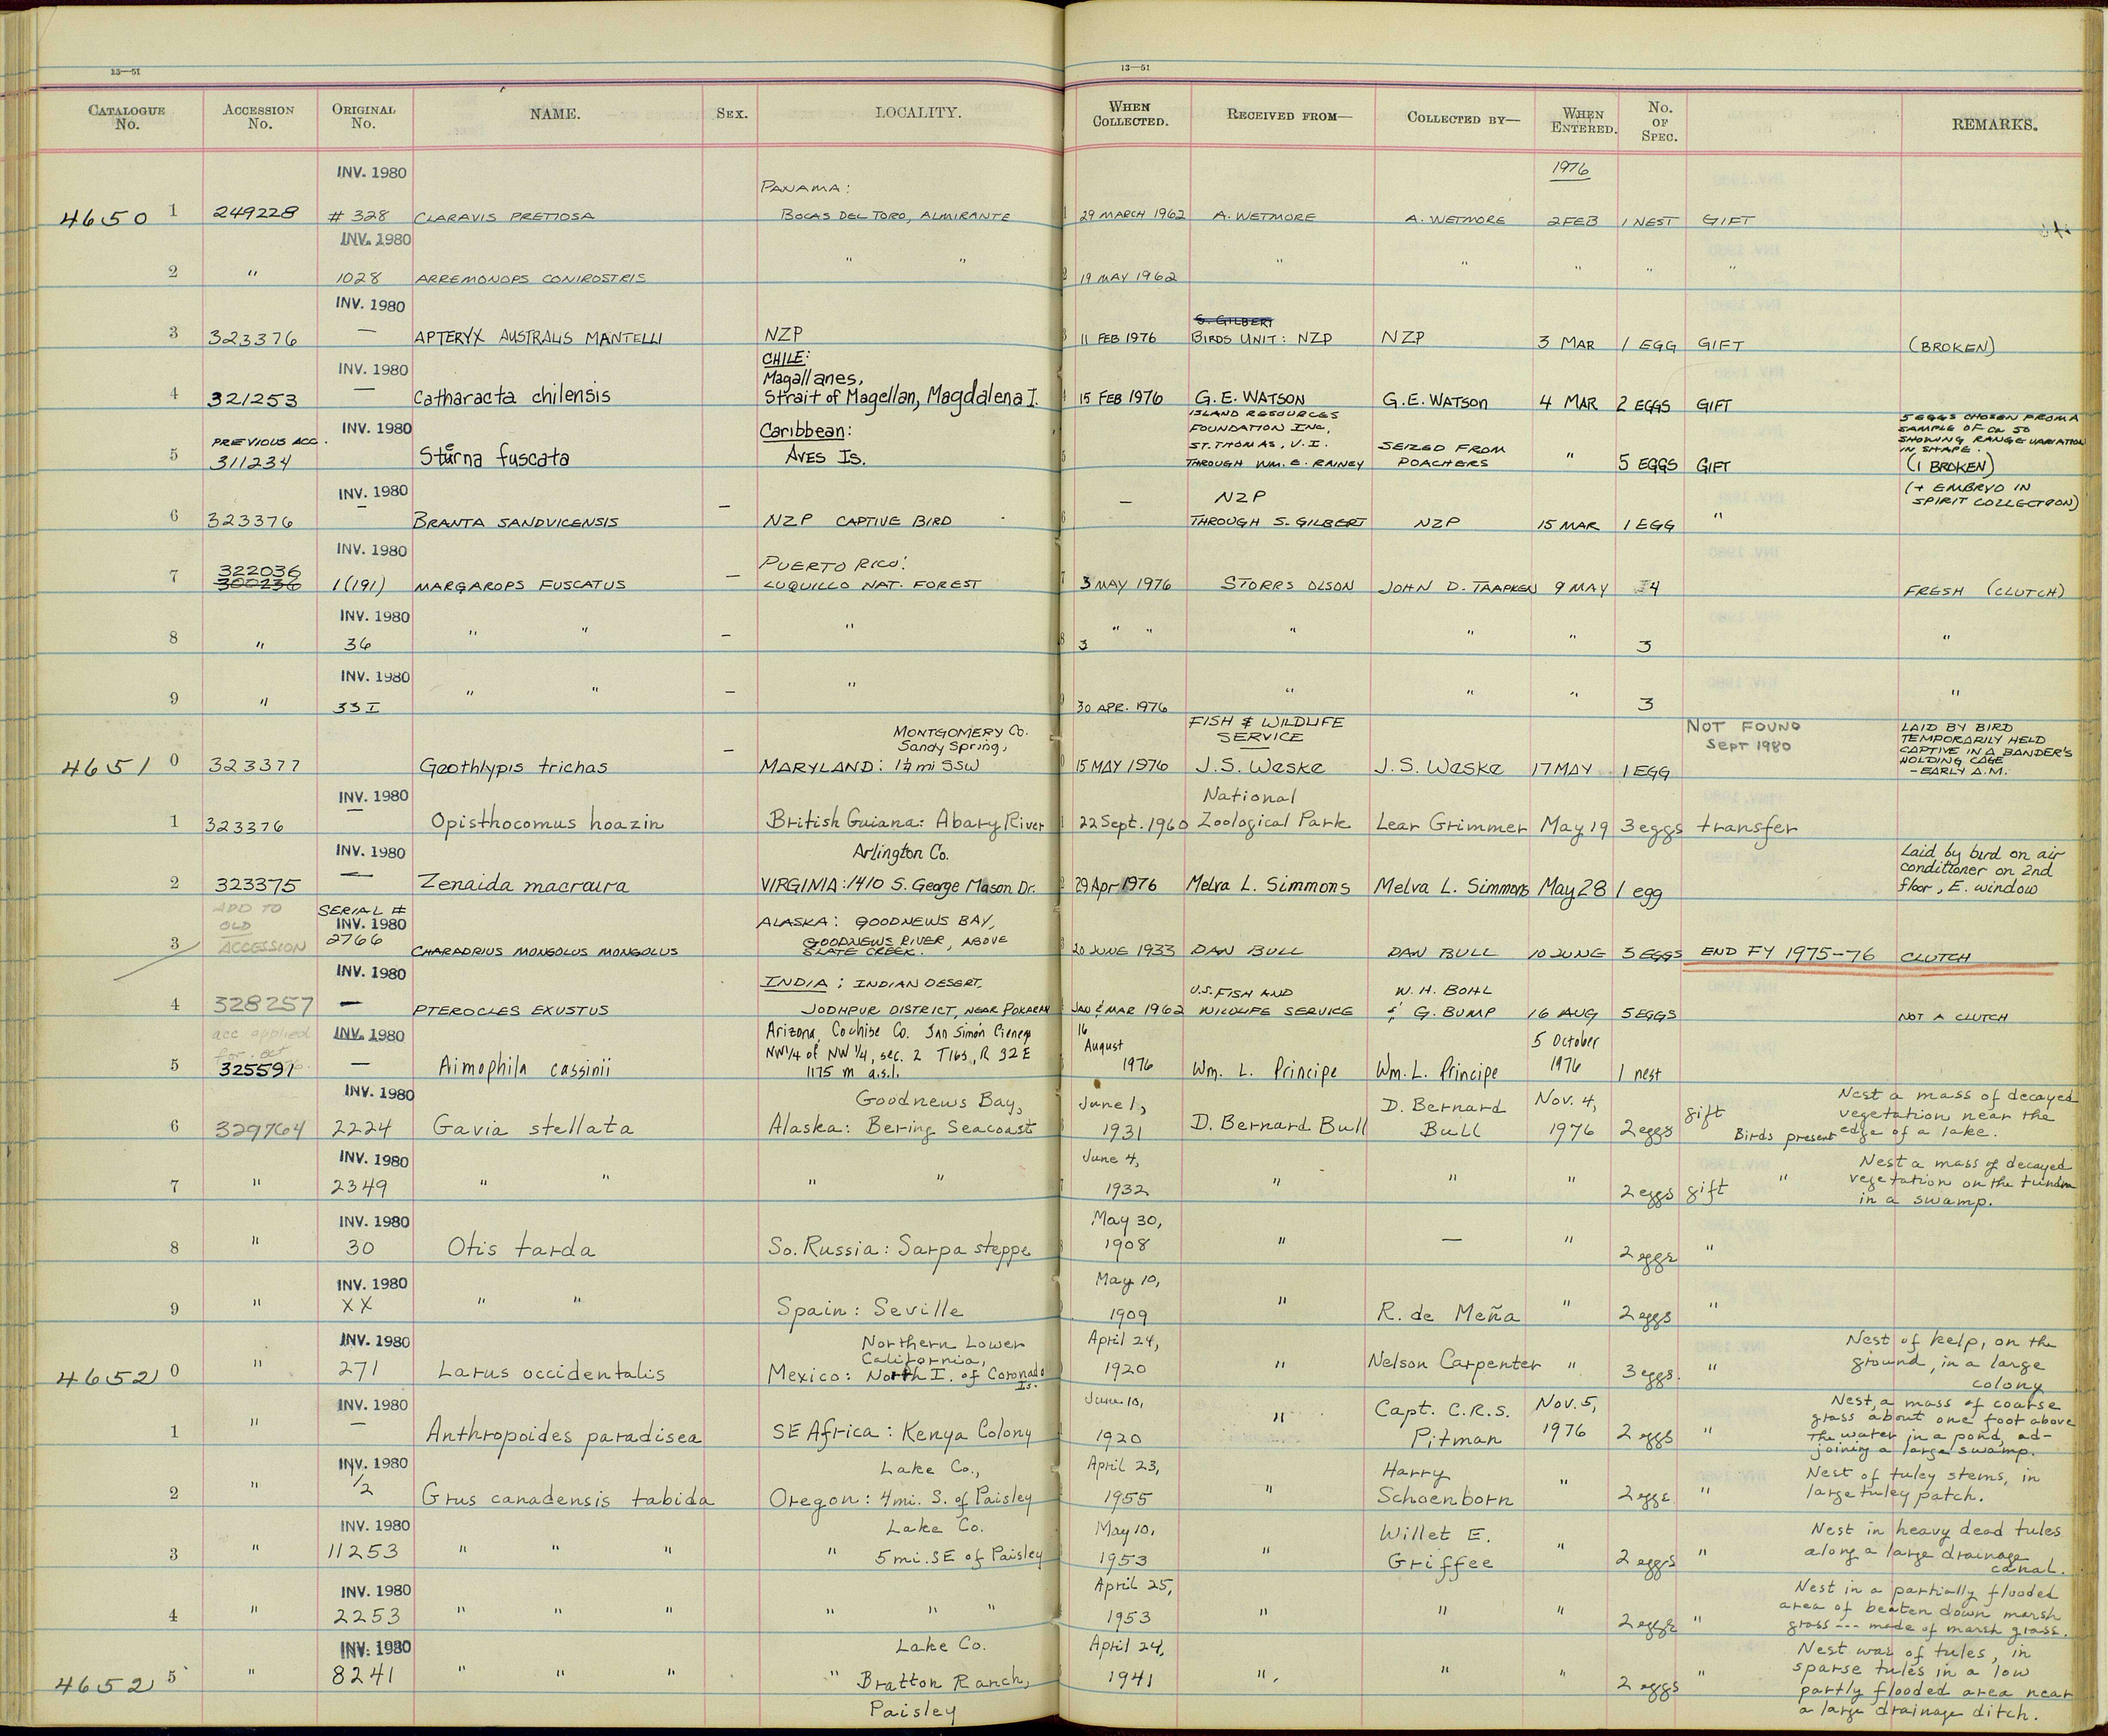 13—51
13—51
CATALOGUE No. ACCESSION No. ORIGINAL No. NAME. SEX. LOCALITY. WHEN COLLECTED. RECEIVED FROM— COLLECTED BY— WHEN ENTERED. No. OF SPEC. REMARKS.
INV. 1980 PANAMA: 1976
4650 1 249228 # 328 CLARAVIS PRETIOSA BOCAS DEL TORO, ALMIRANTE 29 MARCH 1962 A. WETMORE A. WETMORE 2 FEB 1 NEST GIFT
INV. 1980
2 " 1028 ARREMONOPS CONIROSTRIS " " 19 MAY 1962 " " " " "
INV. 1980 S. GILBERT
3 323376 — APTERYX AUSTRALIS MANTELLI NZP 11 FEB 1976 BIRDS UNIT: NZP NZP 3 MAR 1 EGG GIFT (BROKEN)
INV. 1980 CHILE:
Magallanes,
4 321253 — Catharacta chilensis Strait of Magellan, Magdalena I. 15 FEB 1976 G.E. WATSON G.E. WATSON 4 MAR 2 EGGS GIFT
PREVIOUS ACC. INV. 1980 Caribbean: ISLAND RESOURCES FOUNDATION INC, ST. THOMAS, V.I. 5 EGGS CHOSEN FROM A SAMPLE OF CA 50 SHOWING RANGE VARIATION IN SHAPE.
5 311234 Sterna fuscata AVES IS. THROUGH WM. E. RAINEY SEIZED FROM POACHERS " 5 EGGS GIFT (1 BROKEN)
INV. 1980 NZP (+ EMBRYO IN SPIRIT COLLECTION)
6 323376 — BRANTA SANDVICENSIS — NZP CAPTIVE BIRD — THROUGH S. GILBERT NZP 15 MAR 1 EGG "
322036 INV. 1980 PUERTO RICO:
7 300236 1(191) MARGAROPS FUSCATUS — LUQUILLO NAT. FOREST 3 MAY 1976 STORRS OLSON JOHN D. TAAPKEN 9 MAY 4 FRESH (CLUTCH)
INV. 1980
8 " 36 " " — " 3 " " " " " 3 "
INV. 1980
9 " 33 I " " — " 30 APR. 1976 " " " 3 "
INV. 1980 MONTGOMERY Co. Sandy Spring, FISH & WILDLIFE SERVICE NOT FOUND Sept 1980 LAID BY BIRD TEMPORARILY HELD CAPTIVE IN A BANDER'S HOLDING CAGE – EARLY A.M.
4651 0 323377 Geothlypis trichas — MARYLAND: 1¼ mi SSW 15 MAY 1976 J.S. Weske J.S. Weske 17 MAY 1 EGG
INV. 1980 National
1 323376 — Opisthocomus hoazin British Guiana: Abary River 22 Sept. 1960 Zoological Park Lear Grimmer May 19 3 eggs transfer
INV. 1980 Arlington Co. Laid by bird on air conditioner on 2nd floor, E. window
2 323375 — Zenaida macroura VIRGINIA: 1410 S. George Mason Dr. 29 Apr 1976 Melva L. Simmons Melva L. Simmons May 28 1 egg
ADD TO OLD ACCESSION SERIAL # INV. 1980 ALASKA: GOODNEWS BAY,
3 2766 CHARADRIUS MONGOLUS MONGOLUS GOODNEWS RIVER, ABOVE SLATE CREEK. 20 JUNE 1933 DAN BULL DAN BULL 10 JUNE 3 EGGS END FY 1975–76 CLUTCH
INV. 1980 INDIA: INDIAN DESERT, U.S. FISH AND W.H. BOHL
4 328257 — PTEROCLES EXUSTUS JODHPUR DISTRICT, NEAR POKARAN JAN & MAR 1962 WILDLIFE SERVICE & G. BUMP 16 AUG 5 EGGS NOT A CLUTCH
acc applied for INV. 1980 Arizona, Cochise Co. San Simón Cienega 16 August 5 October
NW¼ of NW¼, sec. 2 T16S, R 32E
5 325591 — Aimophila cassinii 1175 m a.s.l. 1976 Wm. L. Principe Wm. L. Principe 1976 1 nest
INV. 1980 Goodnews Bay, June 1, D. Bernard Nov. 4, gift Nest a mass of decayed vegetation near the
6 329764 2224 Gavia stellata Alaska: Bering Seacoast 1931 D. Bernard Bull Bull 1976 2 eggs Birds present edge of a lake.
INV. 1980 June 4, Nest a mass of decayed vegetation on the tundra
7 " 2349 " " " " 1932 " " " 2 eggs gift " in a swamp.
INV. 1980 May 30,
8 " 30 Otis tarda So. Russia: Sarpa steppe 1908 " — " 2 eggs "
INV. 1980 May 10,
9 " XX " " Spain: Seville 1909 " R. de Meña " 2 eggs "
INV. 1980 Northern Lower California, April 24, Nest of kelp, on the ground, in a large
4652 0 " 271 Larus occidentalis Mexico: North I. of Coronado Is. 1920 " Nelson Carpenter " 3 eggs. " colony
INV. 1980 June 10, Capt. C.R.S. Nov. 5, Nest, a mass of coarse grass about one foot above
1 " — Anthropoides paradisea SE Africa: Kenya Colony 1920 " Pitman 1976 2 eggs " the water in a pond, ad-joining a large swamp.
INV. 1980 Lake Co., April 23, Harry Nest of tuley stems, in
2 " 1/2 Grus canadensis tabida Oregon: 4 mi. S. of Paisley 1955 " Schoenborn " 2 eggs " large tuley patch.
INV. 1980 Lake Co. May 10, Willet E. Nest in heavy dead tules
3 " 11253 " " " " 5 mi. SE of Paisley 1953 " Griffee " 2 eggs " along a large drainage canal.
INV. 1980 April 25, Nest in a partially flooded
4 " 2253 " " " " " " 1953 " " " 2 eggs " area of beaten down marsh grass --- made of marsh grass.
INV. 1980 Lake Co. April 24, Nest was of tules, in sparse tules in a low
4652 5 " 8241 " " " " Bratton Ranch, Paisley 1941 " " " 2 eggs " partly flooded area near a large drainage ditch.